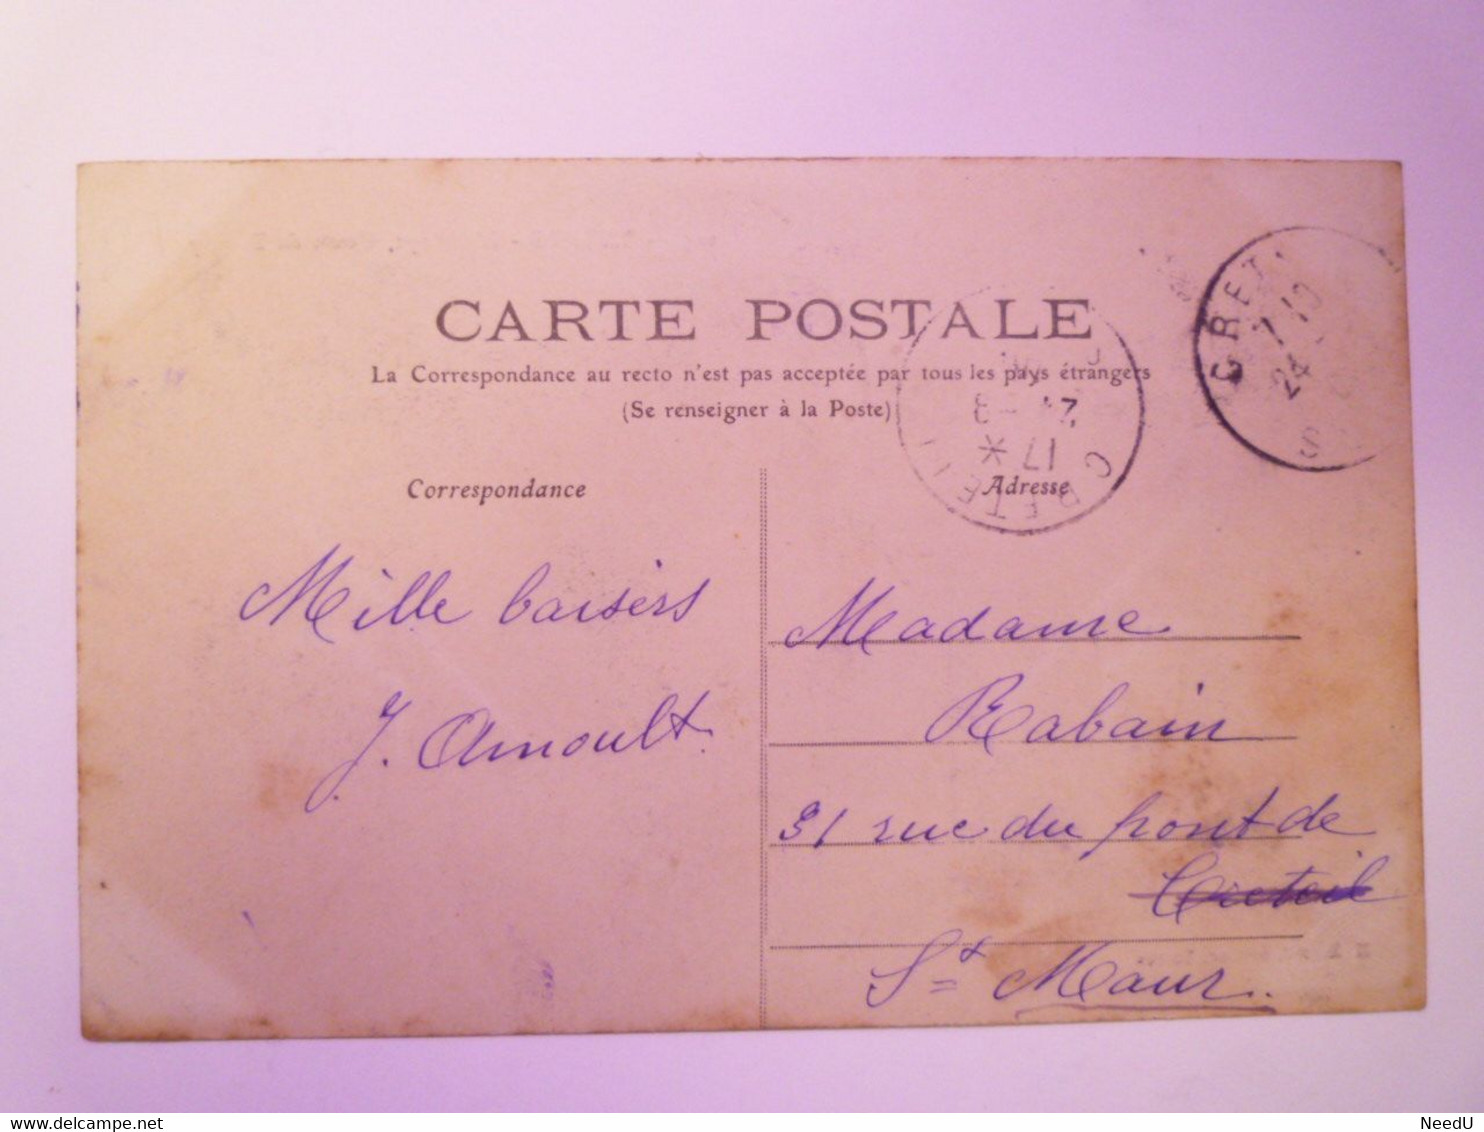 CARTE POSTALE
La Correspondance au recto n'est pas acceptée par tous les pays étrangers
(Se renseigner à la Poste)
Correspondance
Adresse
Mille baisers
J. Arnoult.
Madame
Rabain
31 rue du pont de
Creteil
St Maur.
CRETEIL
17 *
CRET
7 10
24
www.delcampe.net
NeedU